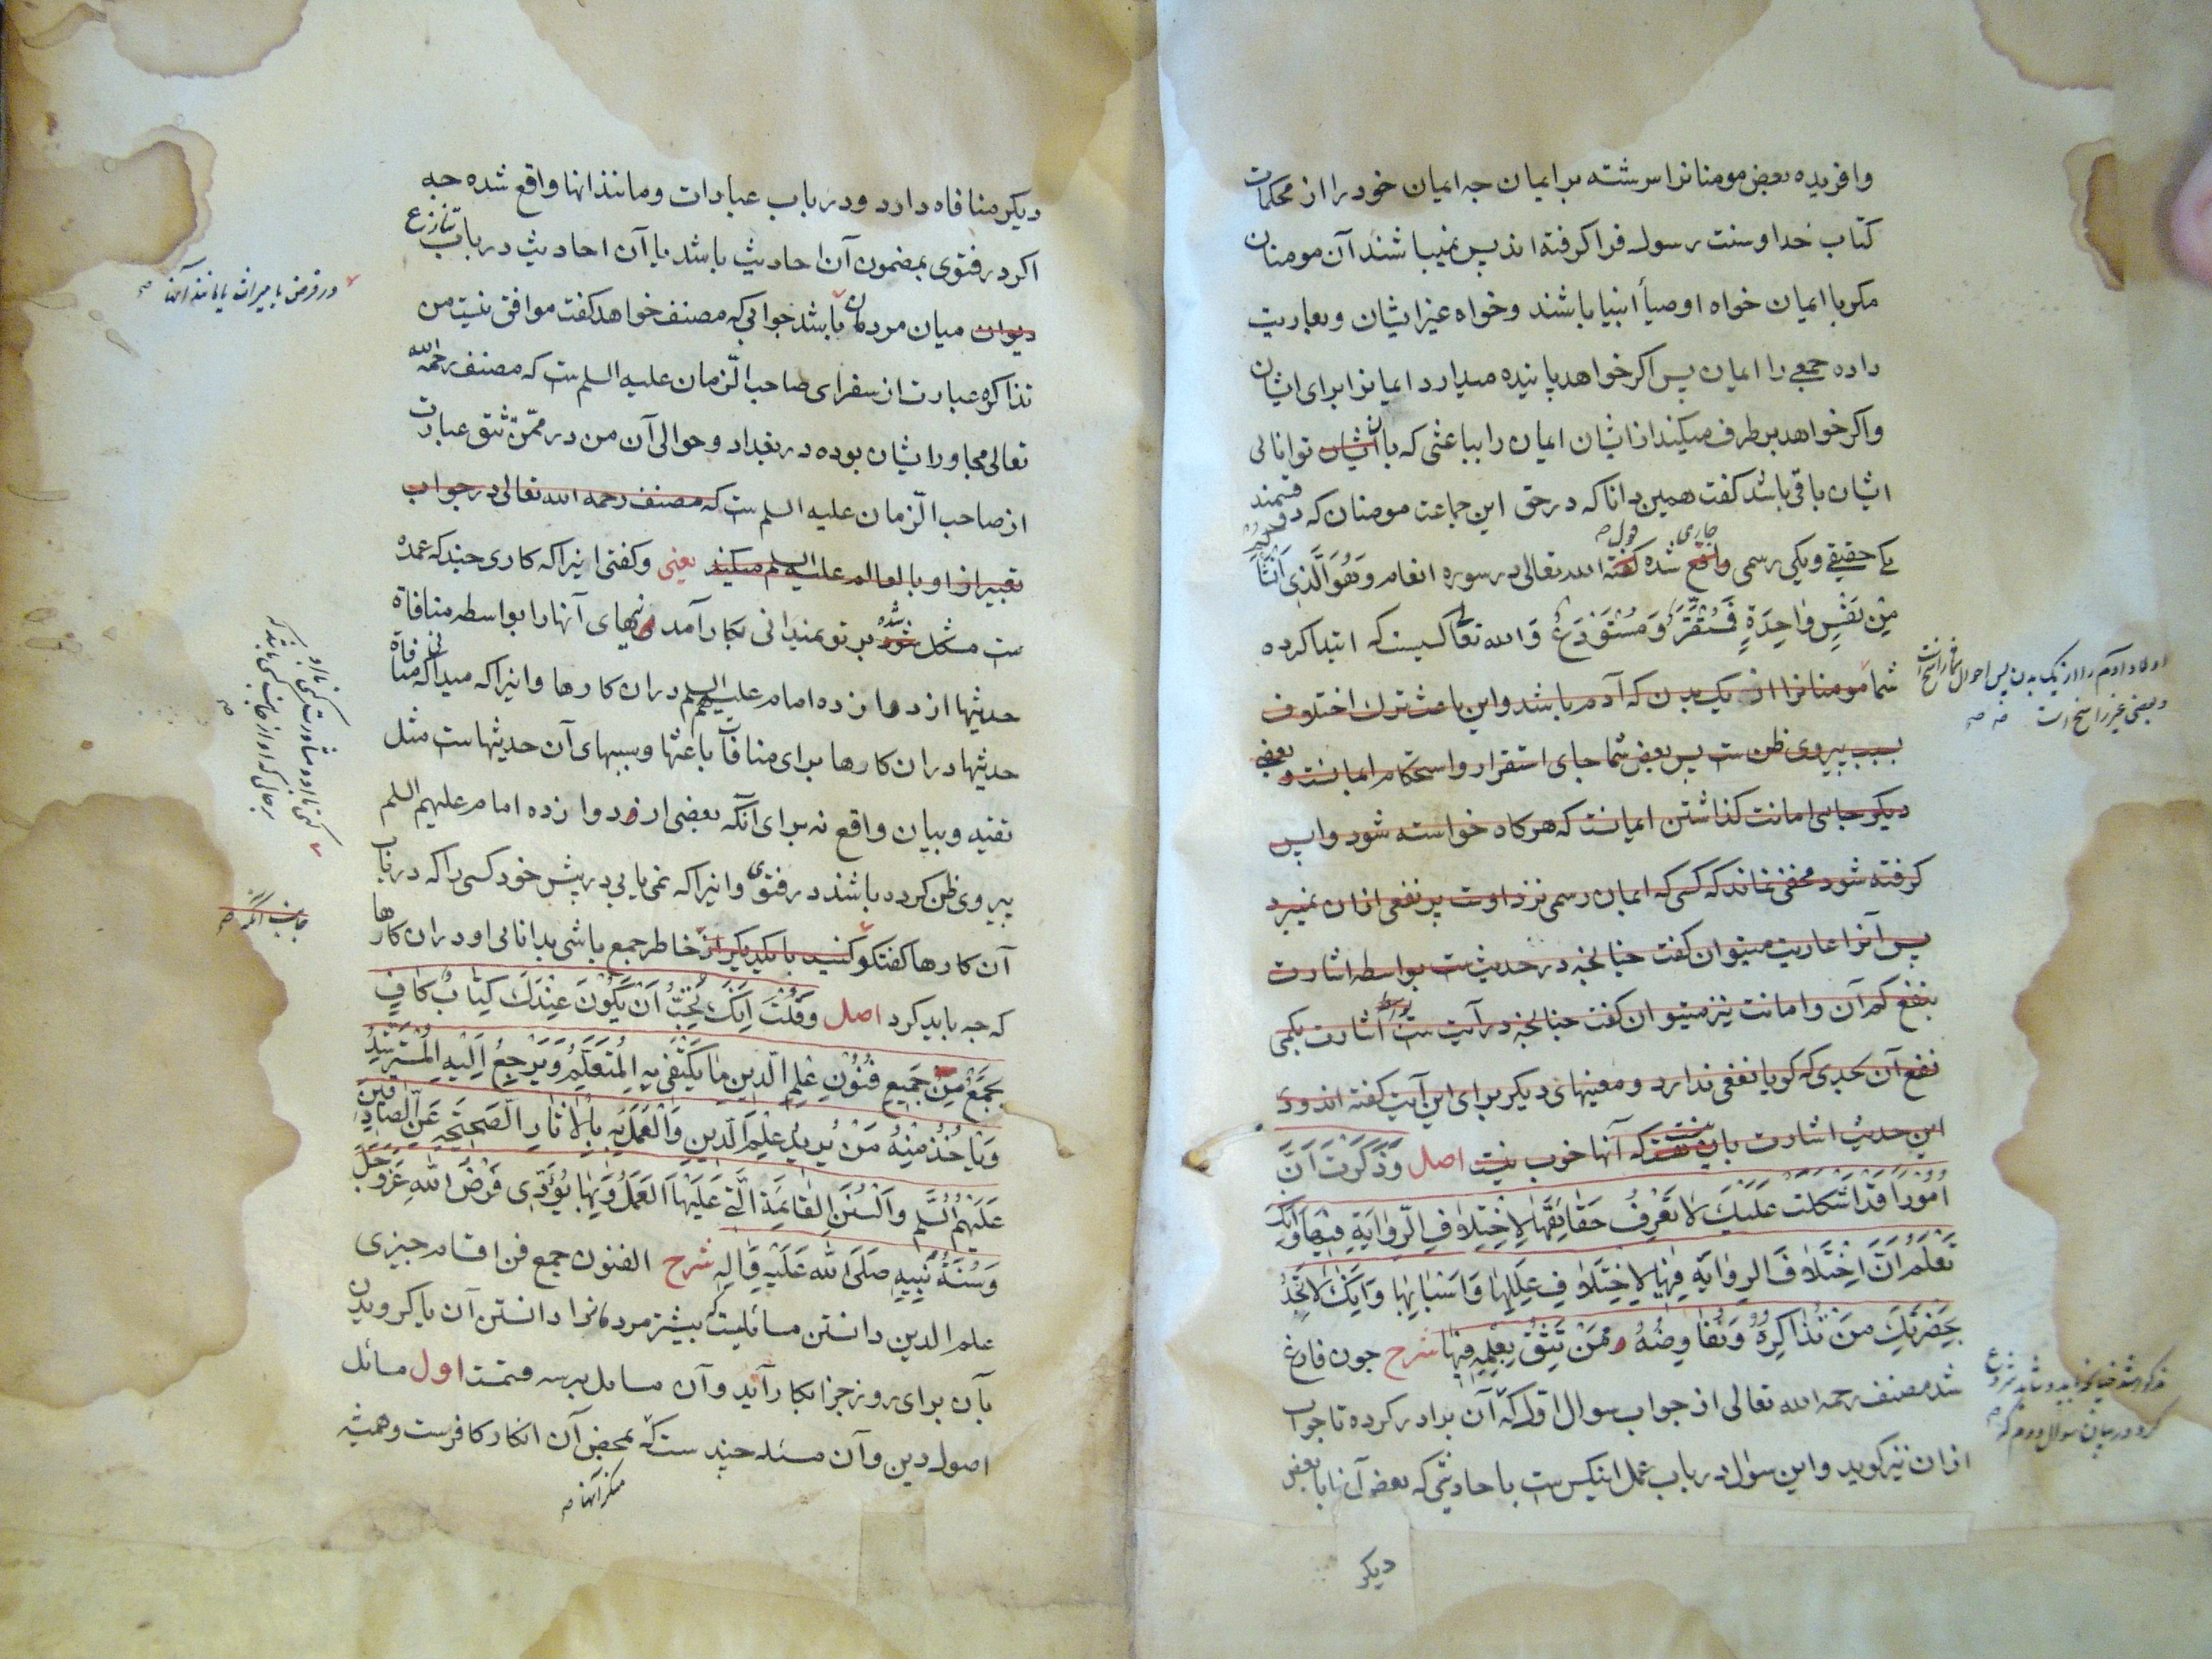 وافریده بعض مومنانرا سرشته بر ایمان جه ایمان خود را از محکمات
کتاب خدا و سنت رسول فرا کرفته اند پس نمیباشند آن مومنان
مکر با ایمان خواه اوصیأ انبیا باشند و خواه غیر ایشان و بعاریت
داده جمعی را ایمان پس اکر خواهد پاینده میدارد ایمانرا برای ایشان
و اکر خواهد بر طرف میکند از ایشان ایمان را بباعثی که با ایشان توانائی
ایشان باقی باشد کفت همین دانا که در حق این جماعت مومنان که دو قسمند
یکی حقیقی و یکی رسمی واقع جاری شده کفته قول الله تعالی در سوره انعام وَهُوَ الَّذِی اَنْشَأَکُمْ
مِنْ نَفْسٍ وٰاحِدَةٍ فَمُسْتَقَرٌّ وَمُسْتَوْدَعٌ وَ الله تعالی کسیست که ابتدا کرده
شما مومنانرا از یک بدن که آدم باشد و این باعث ترک اختلاف
بسبب پیروی ظن ست پس بعض شما جای استقرار و استحکام ایمانست و بعض
دیکر جای امانت کذاشتن ایمانست که هرکاه خواسته شود واپس
کرفته شود مخفی نماند که کسی که ایمان رسمی نزد اوست پر نفعی ازان نمیبرد
پس آنرا عاریت میتوان کفت چنانچه در حدیث ست بواسطه اشارت
بنفع کم آن و امانت نیز میتوان کفت چنانچه در آیت ست اشارت بکمی
نفع آن بحدی که کویا نفعی ندارد و معنیهای دیکر برای این آیت کفته اند و در
این حدیث اشارت باین ست که آنها خوب نیست اصل وَذَکَرْتَ اَنَّ
اُمُورًا قَدْ اَشْکَلَتْ عَلَیْکَ لاٰ تَعْرِفُ حَقٰائِقَهٰا لاِخْتِلاٰفِ الرِّوٰایَةِ فِیهٰا وَاِنَّکَ
تَعْلَمُ اَنَّ اخْتِلاٰفَ الرِّوٰایَةِ فِیهٰا لاِخْتِلاٰفِ عِلَلِهٰا وَاَسْبٰابِهٰا وَاَنَّکَ لاٰ تَجِدُ
بِحَضْرَتِکَ مَنْ تُذٰاکِرُهُ وَتُفٰاوِضُهُ مِمَّنْ تَثِقُ بِعِلْمِهِ فِیهٰا شرح جون فارغ
شد مصنف رحمه الله تعالی از جواب سوال اوّل که آن برادر کرده تا جواب
ازان نیز کوید و این سوال در باب عمل اینکس ست باحادیثی که بعض آنها با بعض
دیکر
اولاد آدم را از یک بدن پس احوال شما راسخ است
و بعضی غیر راسخ است
مذکور شد چنانچه باید و شاید شروع
کرد در بیان سوال دوم که
دیکر منافاه دارد و در باب عبادات و مانند انها واقع شده جه
اکر در فتوی بمضمون آن احادیث باشد یا آن احادیث در باب تنازع
دیوان میان مردمان باشد جوابی که مصنف خواهد کفت موافق نیست من
تذاکره عبارت از سفرای صاحب الزمان علیه السلم ست که مصنف رحمه الله
تعالی مجاور ایشان بوده در بغداد و حوالی آن من در ممّن تثق عبارت
از صاحب الزمان علیه السلم ست که مصنف رحمه الله تعالی در جواب
تعبیر از او بالعالم علیه السلم میکند یعنی و کفتی اینرا که کاری چند که عمده
ست مشکل شده بر تو نمیدانی بکار آمدنیهای آنها را بواسطه منافاة
حدیثها از دوازده امام علیهم السلم دران کارها و اینرا که میدانی که منافاة
حدیثها دران کارها برای منافات باعثها و سببهای آن حدیثهاست مثل
تقیه و بیان واقع نه برای آنکه بعضی از دوازده امام علیهم السلم
پیروی ظن کرده باشند در فتوی و اینرا که نمی یابی در پیش خود کسی را که در باب
آن کارها کفتکو کنید با یکدیکر از خاطر جمع باشی بدانائی او دران کارها
که جه باید کرد اصل وَقُلْتَ اِنَّکَ تُحِبُّ اَنْ یَکُونَ عِنْدَکَ کِتٰابٌ کٰافٍ
یَجْمَعُ مِنْ جَمِیعِ فُنُونِ عِلْمِ الدِّینِ مٰا یَکْتَفِی بِهِ الْمُتَعَلِّمُ وَیَرْجِعُ اِلَیْهِ الْمُسْتَرْشِدُ
وَیَأْخُذُ مِنْهُ مَنْ یُرِیدُ عِلْمَ الدِّینِ وَالْعَمَلَ بِهِ بِالْاٰثٰارِ الصَّحِیحَةِ عَنِ الصّٰادِقِینَ
عَلَیْهِمُ السَّلم وَالسُّنَنِ الْقٰائِمَةِ الَّتِی عَلَیْهَا الْعَمَلُ وَبِهٰا یُؤَدّٰی فَرْضُ اللهِ عَزَّ وَجَلَّ
وَسُنَّةُ نَبِیِّهِ صَلَّی اللهُ عَلَیْهِ وَاٰلِهِ شرح الفنون جمع فن اقسام چیزی
علم الدین دانستن مسائلیست که بیشتر مردمانرا دانستن آن یا کرویدن
بآن برای روز جزا بکار آید و آن مسایل بر سه قسمت اول مسائل
اصول دین و آن مسئله چند ست که بمحض آن انکار کافرست و همیشه
منکر آنها
و در قرض یا میراث یا مانند آنها